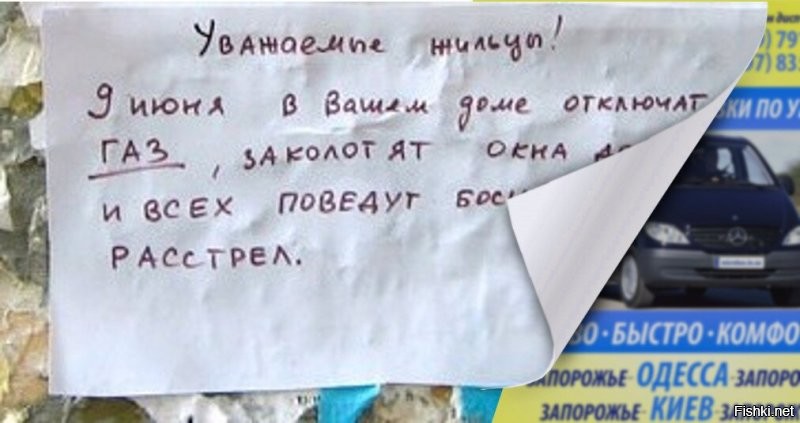 Уважаемые жильцы!
9 июня в Вашем доме отключат
ГАЗ, заколотят окна
и всех поведут
расстрел.
) 79
7) 83
КИ ПО У
ВО · БЫСТРО · КОМФО
ЗАПОРОЖЬЕ ОДЕССА ЗАПОРО
ЗАПОРОЖЬЕ КИЕВ ЗАПОРО
Fishki.net